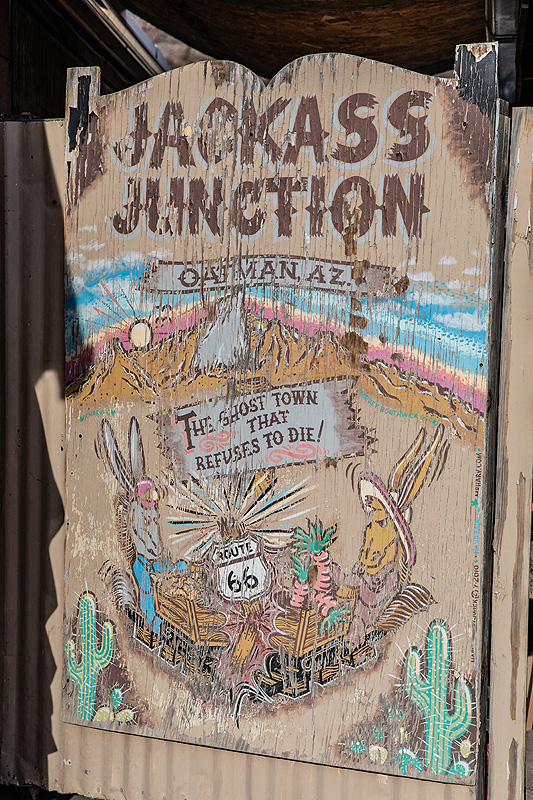 JACKASS
JUNCTION
OATMAN, AZ.
THE GHOST TOWN
THAT
REFUSES TO DIE!
ROUTE
66